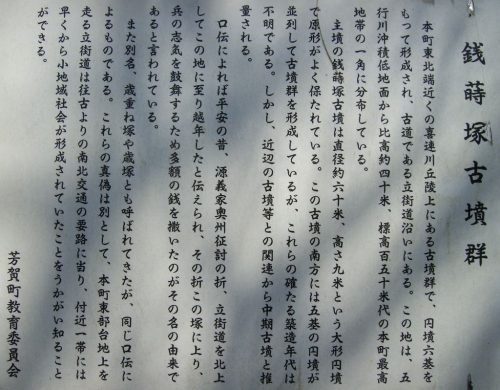 銭蒔塚古墳群
本町東北端近くの喜連川丘陵上にある古墳群で、円墳六基を
もって形成され、古道である立街道沿いにある。この地は、五
行川沖積低地面から比高約四十米、標高百五十米代の本町最高
地帯の一角に分布している。
主墳の銭蒔塚古墳は直径約六十米、高さ九米という大形円墳
で原形がよく保たれている。この古墳の南方には五基の円墳が
並列して古墳群を形成しているが、これらの確たる築造年代は
不明である。しかし、近辺の古墳等との関連から中期古墳と推
量される。
口伝によれば平安の昔、源義家奥州征討の折、立街道を北上
してこの地に至り越年したと伝えられ、その折この塚に上り、
兵の志気を鼓舞するため多額の銭を撒いたのがその名の由来で
あると言われている。
また別名、歳重ね塚や歳塚とも呼ばれてきたが、同じ口伝に
よるものである。これらの真偽は別として、本町東部台地上を
走る立街道は往古よりの南北交通の要路に当り、付近一帯には
早くから小地域社会が形成されていたことをうかがい知ること
ができる。
芳賀町教育委員会